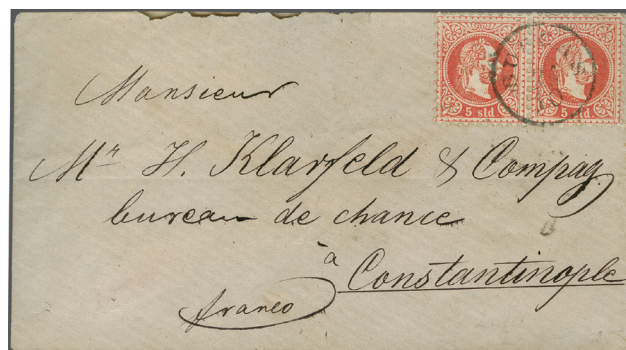 5 sld 5 sld
Monsieur
Mr H. Klarfeld & Compag.
bureau de chance
à Constantinople
franco